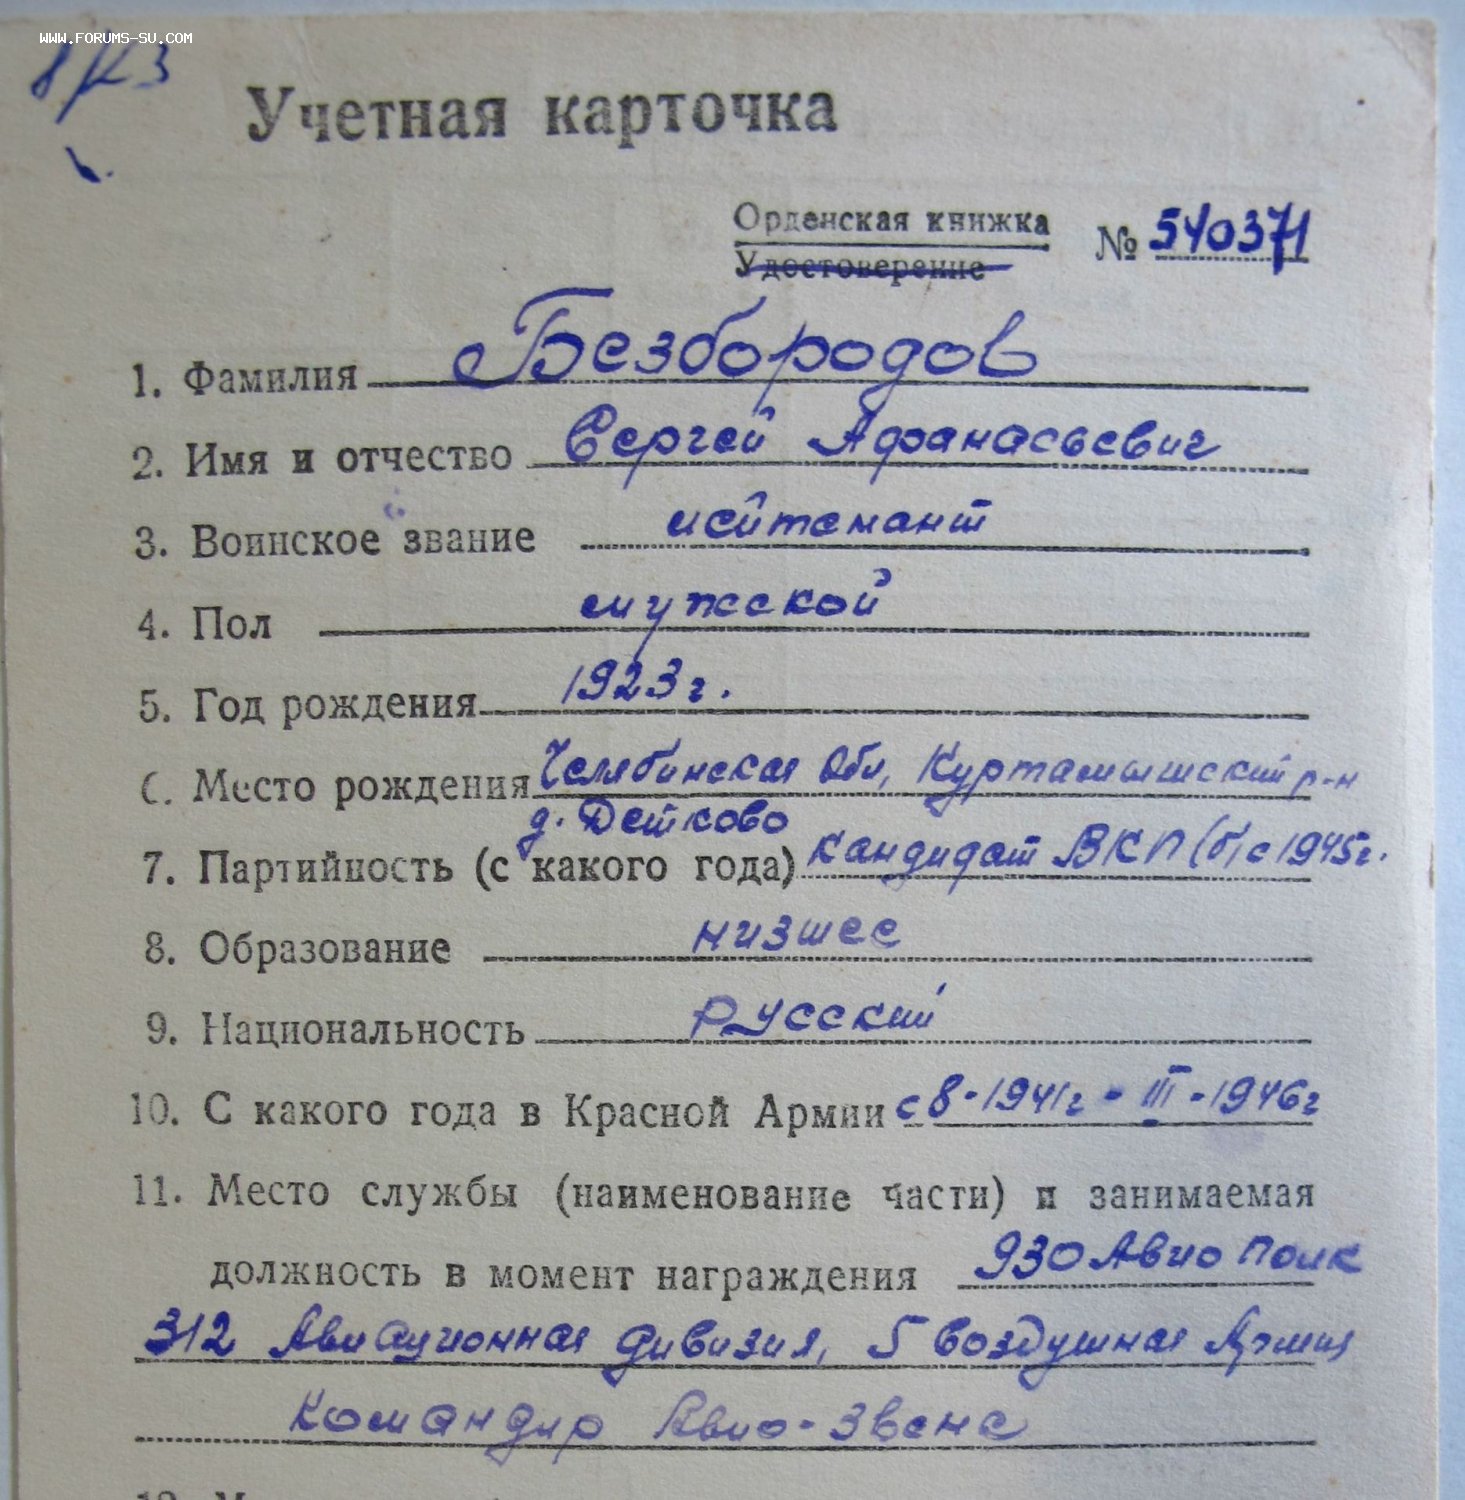 WWW.FORUMS-SU.COM
Учетная карточка
Орденская книжка № 540371
Удостоверение
1. Фамилия Безбородов
2. Имя и отчество Сергей Афанасьевич
3. Воинское звание лейтенант
4. Пол мужской
5. Год рождения 1923 г.
6. Место рождения Челябинская Обл, Куртамышский р-н
д. Детково
7. Партийность (с какого года) кандидат ВКП(б) с 1945 г.
8. Образование низшее
9. Национальность русский
10. С какого года в Красной Армии с 8-1941 г - III - 1946 г
11. Место службы (наименование части) и занимаемая
должность в момент награждения 930 Авио Полк
312 Авиационная дивизия, 5 Воздушная Армия
Командир Авио-Звена